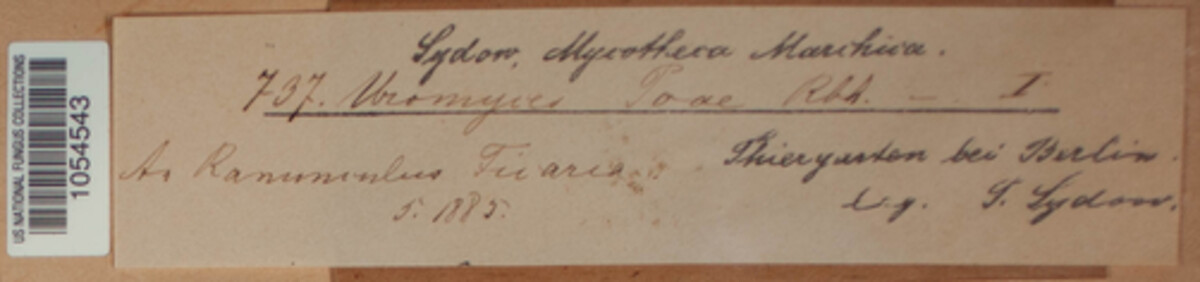 US NATIONAL FUNGUS COLLECTIONS
1054543
Sydow, Mycotheca Marchica.
737. Uromyces Poae Rbh. — I
An Ranunculus Ficaria.
5. 1885.
Thiergarten bei Berlin.
leg. P. Sydow.